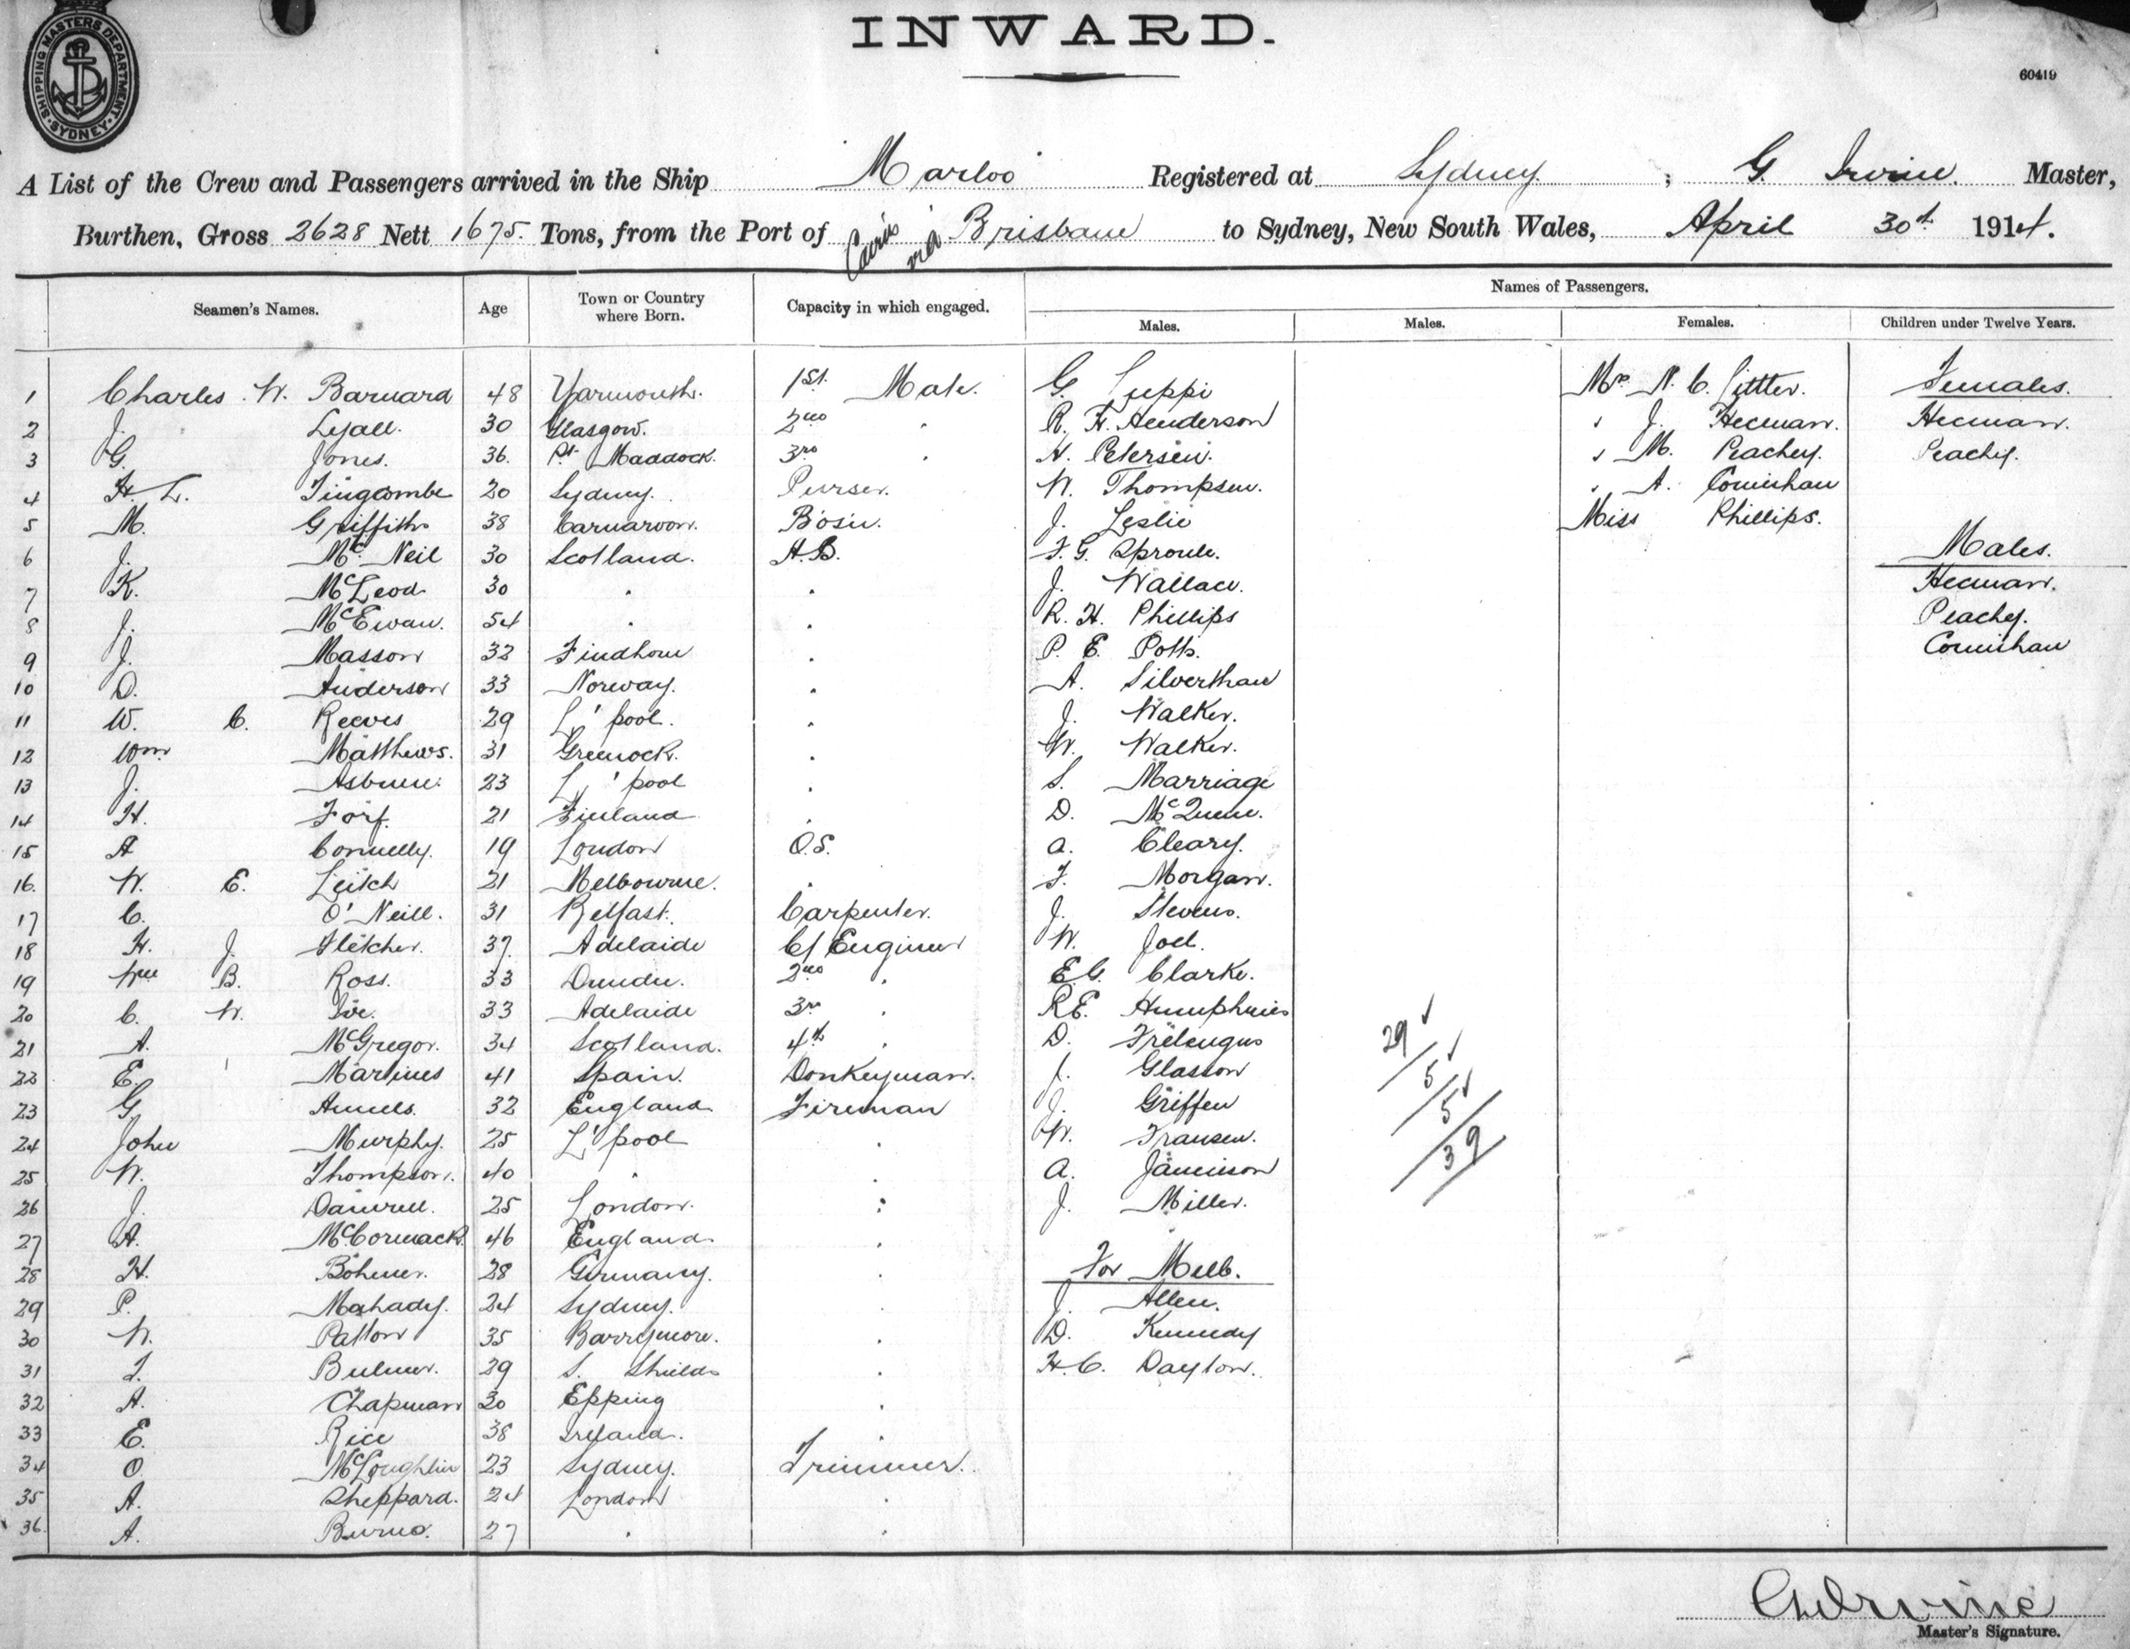 SHIPPING MASTERS DEPARTMENT SYDNEY
INWARD.
60419
A List of the Crew and Passengers arrived in the Ship "Marloo" Registered at Sydney ; G. Irvine. Master,
Burthen, Gross 2628 Nett 1675. Tons, from the Port of Cairns via Brisbane to Sydney, New South Wales, April 30th 1914.
Seamen's Names. Age Town or Country where Born. Capacity in which engaged. Names of Passengers.
Males. Males. Females. Children under Twelve Years.
1 Charles W. Barnard 48 Yarmouth. 1st. Mate. G. Luppi Mrs N. C. Females.
2 J. Lyall. 30 Glasgow. 2nd " R. H. Henderson " J. Heeman. Heeman.
3 G. Jones. 36. Pt. Maddock. 3rd " H. Petersen. " M. Peachey. Peachey.
4 H. L. Tingcombe 20 Sydney. Purser. W. Thompson. " A. Cornishaw
5 M. Griffiths 38 Carnarvon. Bosun. J. Leslie Miss Phillips.
6 J. McNeil 30 Scotland. A.B. F. G. Sproule. Males.
7 K. McLeod 30 " " J. Wallace. Heeman.
8 J. McEwan. 54 " " R. H. Phillips Peachey.
9 J. Masson 32 Findhorn " P. E. Potts. Cornishaw
10 D. Anderson 33 Norway. " A. Silverthaw
11 W. C. Reeves 29 L'pool. " J. Walker.
12 Wm. Matthews. 31 Greenock. " W. Walker.
13 J. 23 L'pool " S. Marriage
14 H. Forf. 21 Finland " D. McQueen.
15 A Connelly. 19 London O.S. A. Cleary.
16. W. E. Leitch 21 Melbourne. " F. Morgan.
17 C. O'Neill. 31 Belfast. Carpenter. J. Stevens.
18 H. J. Fletcher. 37. Adelaide C/Engineer W. Joel.
19 Wm B. Ross. 33 Dundee. 2nd " E. G. Clarke.
20 C. W. Ive. 33 Adelaide 3rd " R. E. Humphries
21 A. McGregor. 34 Scotland. 4th " D.
22 E. Marines 41 Spain. Donkeyman. J. Glasson
23 G. Annels. 32 England Fireman J. Griffen
24 John Murphy. 25 L'pool " W. Fransen.
25 W. Thompson. 40 " " A. Jamieson
26 J. 25 London. " J. Miller.
29
5
5
39
27 A. McCormack. 46 England. "
28 H. Bohmer. 28 Germany. " For Melb.
29 P. Mahady. 24 Sydney. " J. Allen.
30 W. Patton 35 Barrymore. " D. Kennedy
31 T. Bulmer. 29 S. Shields " H. C. Dayton.
32 A. Chapman 30 Epping "
33 E. Rice 38 Ireland. "
34 O McLoughlin 23 Sydney. Trimmer.
35 A. Sheppard. 24 London "
36. A. Burns. 27 " "
G Irvine
Master's Signature.